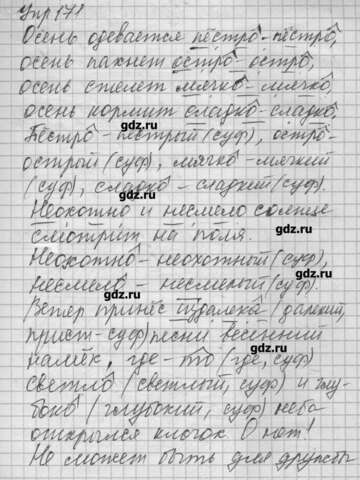 Упр 171
Осень одевается пёстро-пёстро,
осень пахнет остро-остро,
осень стелет мягко-мягко,
осень кормит сладко-сладко,
Пёстро - пёстрый (суф), остро-
острый (суф), мягко-мягкий
(суф), сладко - сладкий (суф).
Неохотно и несмело солнце
смотрит на поля.
Неохотно-неохотный (суф),
несмело - несмелый (суф).
Ветер принёс издалека (далекий,
прист-суф) песни весенний
намёк, где-то (где, суф)
светло (светлый, суф) и глу-
боко (глубокий, суф) неба
открылся клочок. О нет!
Не может быть для дружбы
gdz.ru
gdz.ru
gdz.ru
gdz.ru
gdz.ru
gdz.ru
gdz.ru
gdz.ru